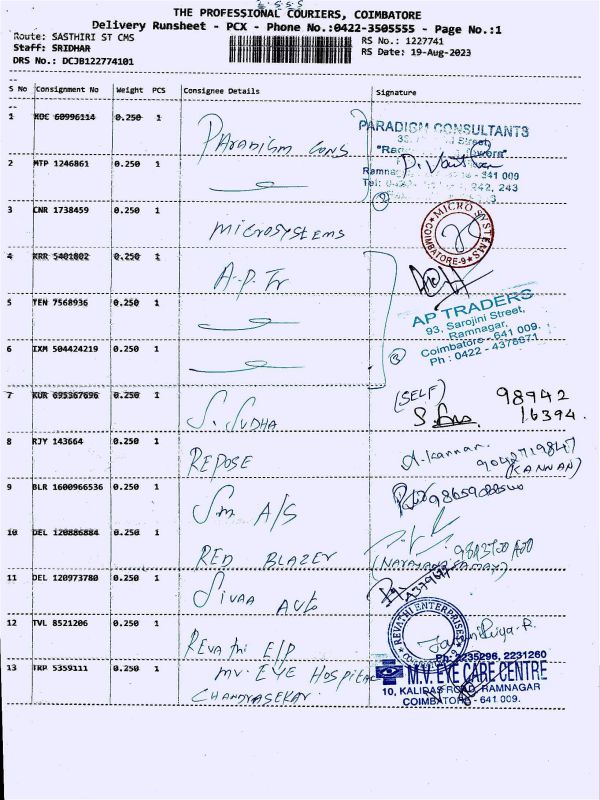 THE PROFESSIONAL COURIERS, COIMBATORE
Delivery Runsheet - PCX - Phone No.:0422-3505555 - Page No.:1
Route: SASTHIRI ST CMS
RS No.: 1227741
Staff: SRIDHAR
RS Date: 19-Aug-2023
DRS No.: DCJB122774101
S No Consignment No Weight PCS Consignee Details Signature
1 KDC 60996114 0.250 1 Paradigm Cons
PARADIGM CONSULTANTS
2 MTP 1246861 0.250 1
Ramnagar
641 009
242, 243
3 CNR 1738459 0.250 1 Microsystems
MICRO SYSTEMS
COIMBATORE-9
4 KRR 5401802 0.250 1 A.P. Tr
5 TEN 7568936 0.250 1
AP TRADERS
93, Sarojini Street,
Ramnagar,
Coimbatore - 641 009.
Ph : 0422 - 4376671
6 IXM 504424219 0.250 1
3
7 KUR 695367696 0.250 1 S. SUDHA
(SELF) 98942
16394
8 RJY 143664 0.250 1 REPOSE
A. Kannan
(KANNAN)
9 BLR 1600966536 0.250 1 Sm A/S
10 DEL 120886884 0.250 1 RED BLAZER
11 DEL 120973780 0.250 1 Sivaa Auto
12 TVL 8521206 0.250 1 Revathi E/P
REVATHI ENTERPRISES
COIMBATORE-9
Ph: 2235296, 2231260
13 TRP 5359111 0.250 1 MV. EYE Hospital
CHANDRASEKAR
M.V. EYE CARE CENTRE
10, KALIDAS ROAD, RAMNAGAR
COIMBATORE - 641 009.